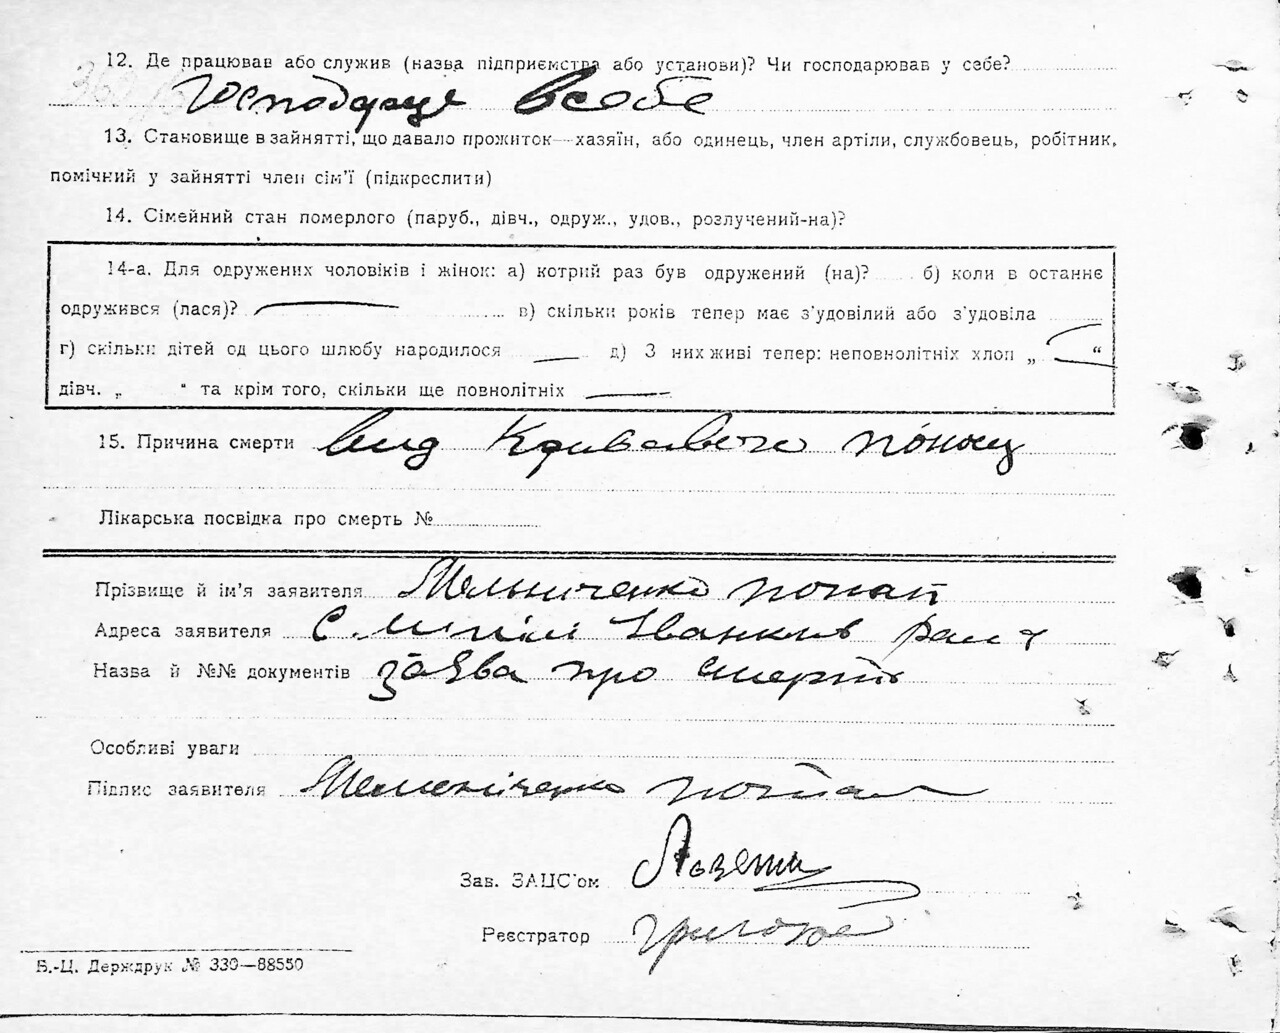 12. Де працював або служив (назва підприємства або установи)? Чи господарював у себе?
Господарює в себе
13. Становище в зайнятті, що давало прожиток—хазяїн, або одинець, член артіли, службовець, робітник,
помічний у зайнятті член сім'ї (підкреслити)
14. Сімейний стан померлого (паруб., дівч., одруж., удов., розлучений-на)?
14-а. Для одружених чоловіків і жінок: а) котрий раз був одружений (на)? б) коли в останнє
одружився (лася)? в) скільки років тепер має з'удовілий або з'удовіла
г) скільки дітей од цього шлюбу народилося д) З них живі тепер: неповнолітніх хлоп „ “
дівч. „ “ та крім того, скільки ще повнолітніх
15. Причина смерти вид кривавого поносу
Лікарська посвідка про смерть №
Прізвище й ім'я заявителя Мельниченко Потап
Адреса заявителя с. Іванків
Назва й №№ документів заява про смерть
Особливі уваги
Підпис заявителя Мельніченко Потап
Зав. ЗАЦС'ом
Реєстратор
Б.-Ц. Держдрук № 330—88550